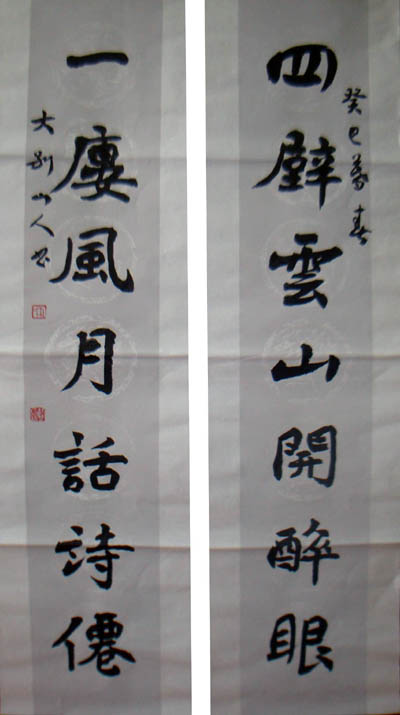 癸巳暮春
四壁雲山開醉眼
一廔風月話詩僊
大别山人书